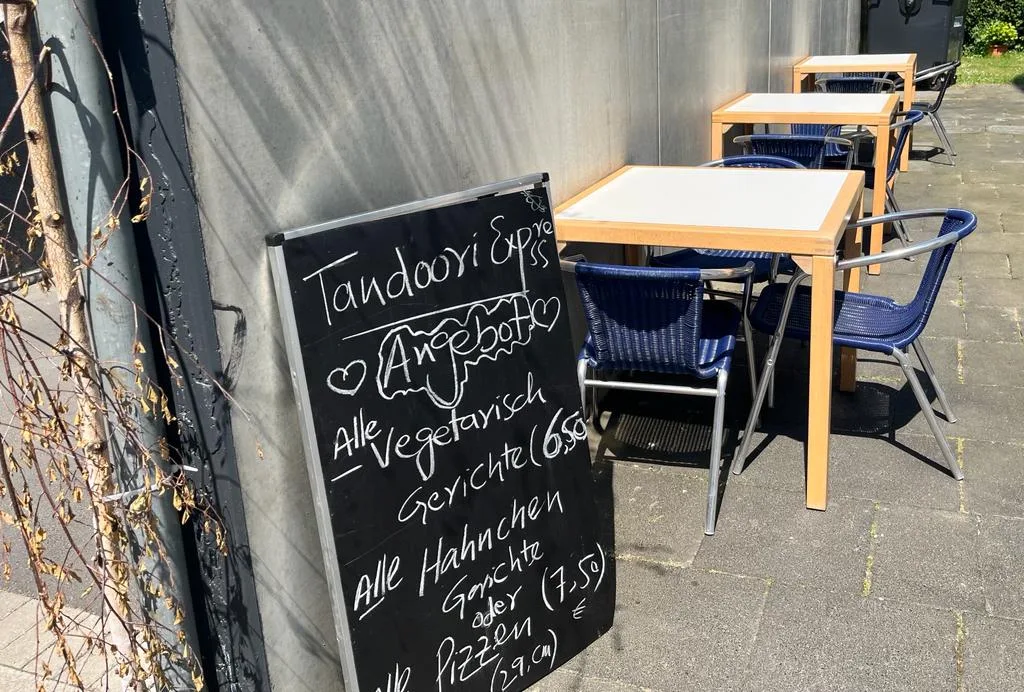 Tandoori Express
Angebot
Alle Vegetarisch
Gerichte (6,50
Alle Hahnchen
Gerichte
oder (7,50)
€
Pizzen
(29,cm)